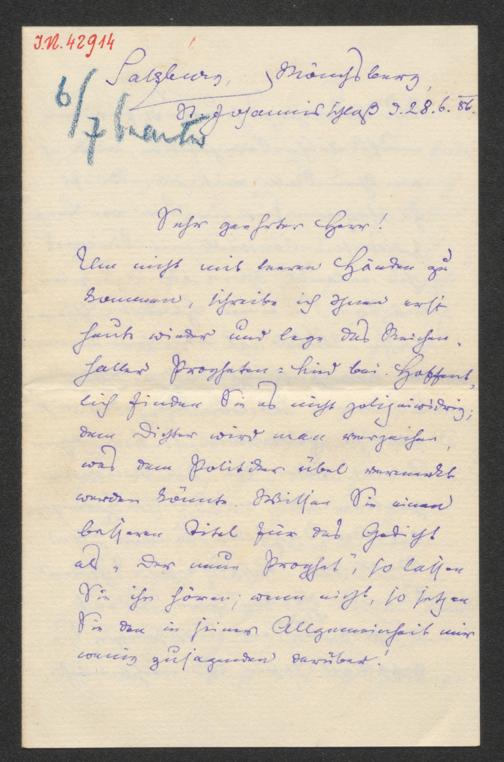 J.N. 42914
Salzburg, Mönchsberg,
St. Johannis Schloß d. 28.6.86.
6/
7 beantw
Sehr geehrter Herr!
Um nicht mit leeren Händen zu
kommen, schreibe ich Ihnen erst
heute wieder und lege das Reichen-
haller Propheten-Kind bei. Hoffent-
lich finden Sie es nicht polizeiwidrig;
dem Dichter wird man verzeihen,
was dem Politiker übel vermerkt
werden könnte. Wissen Sie einen
besseren Titel für das Gedicht
als „Der neue Prophet", so lassen
Sie ihn hören; wenn nicht, so setzen
Sie den in seiner Allgemeinheit mir
wenig zusagenden darüber!